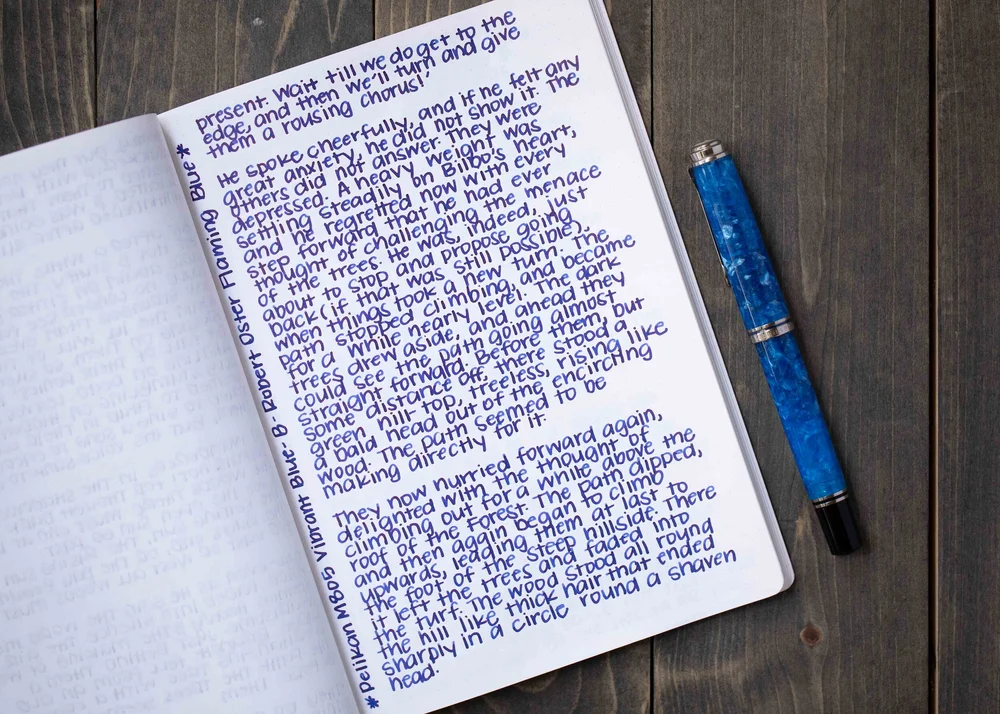 present. Wait till we do get to the
edge, and then we'll turn and give
them a rousing chorus!'
He spoke cheerfully, and if he felt any
great anxiety, he did not show it. The
others did not answer. They were
depressed. A heavy weight was
settling steadily on Bilbo's heart,
and he regretted now with every
step forward that he had ever
thought of challenging the menace
of the trees. He was, indeed, just
about to stop and propose going
back (if that was still possible),
when things took a new turn. The
path stopped climbing, and became
for a while nearly level. The dark
trees drew aside, and ahead they
could see the path going almost
straight forward. Before them, but
some distance off, there stood a
green hill-top, treeless, rising like
a bald head out of the encircling
wood. The path seemed to be
making directly for it.
They now hurried forward again,
delighted with the thought of
climbing out for a while above the
roof of the Forest. The path dipped,
and then again began to climb
upwards, leading them at last to
the foot of the steep hillside. There
it left the trees and faded into
the turf. The wood stood all round
the hill like thick hair that ended
sharply in a circle round a shaven
head.
*Pelikan M805 Vibrant Blue- B - Robert Oster Flaming Blue*